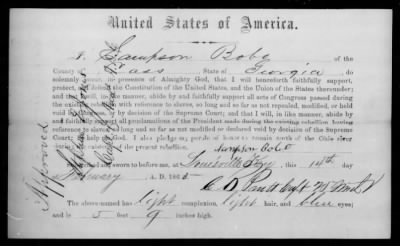 United States of America.
I, Sampson Bobo of the
County of Cass State of Georgia do
solemnly swear, in presence of Almighty God, that I will henceforth faithfully support,
protect, and defend the Constitution of the United States, and the Union of the States thereunder;
and that I will, in like manner, abide by and faithfully support all acts of Congress passed during
the existing rebellion with reference to slaves, so long and so far as not repealed, modified, or held
void by Congress, or by decision of the Supreme Court; and that I will, in like manner, abide by
and faithfully support all proclamations of the President made during the existing rebellion having
reference to slaves, so long and so far as not modified or declared void by decision of the Supreme
Court; So help me God. I also pledge my parole of honor to remain north of the Ohio river
during the existence of the present rebellion.
Sampson Bobo
Sworn and subscribed to before me, at Louisville Ky, this 14th day
of January A.D. 1865.
The above-named has light complexion, light hair, and blue eyes;
and is 5 feet 9 inches high.
Approved